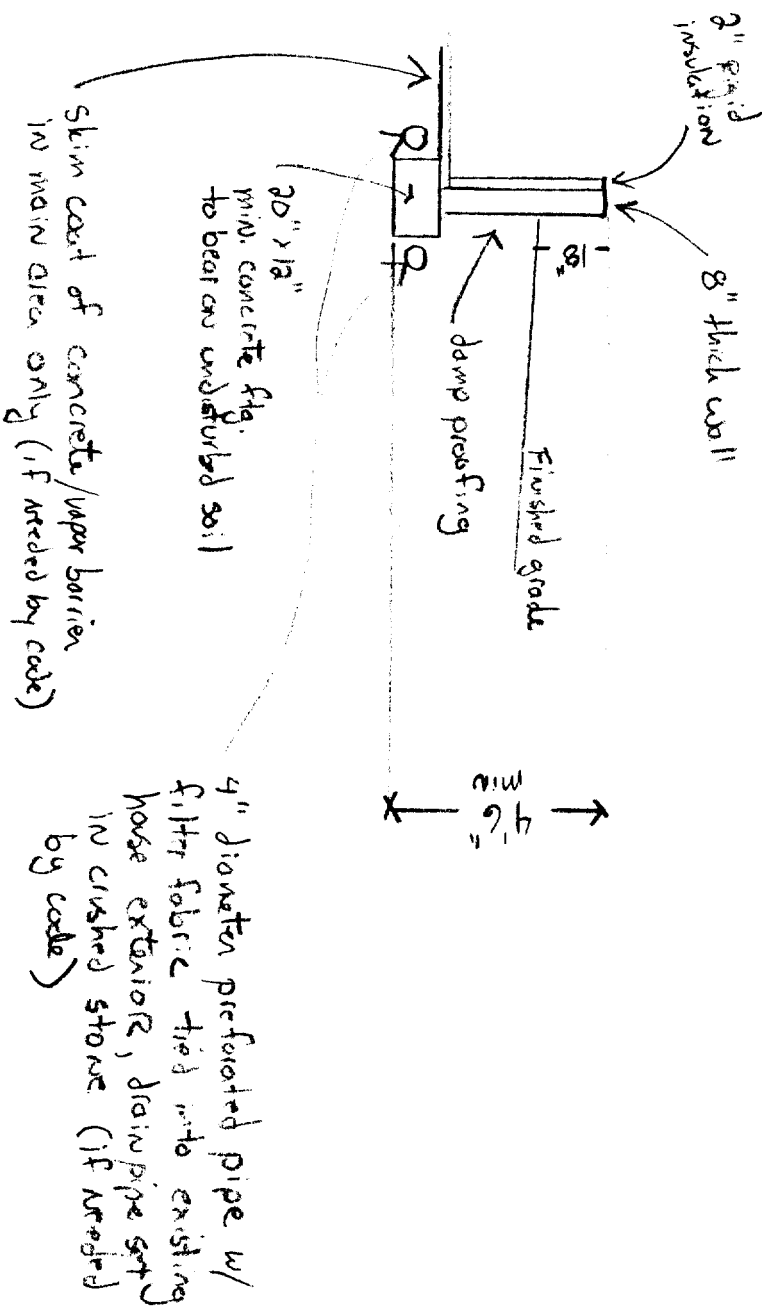 2" rigid
insulation
8" thick wall
18"
Finished grade
damp proofing
4'6"
min
20" x 12"
min. concrete ftg.
to bear on undisturbed soil
skim coat of concrete/vapor barrier
in main area only (if needed by code)
4" diameter preforated pipe w/
filter fabric tied into existing
house exterior, drainpipe set
in crushed stone (if needed
by code)